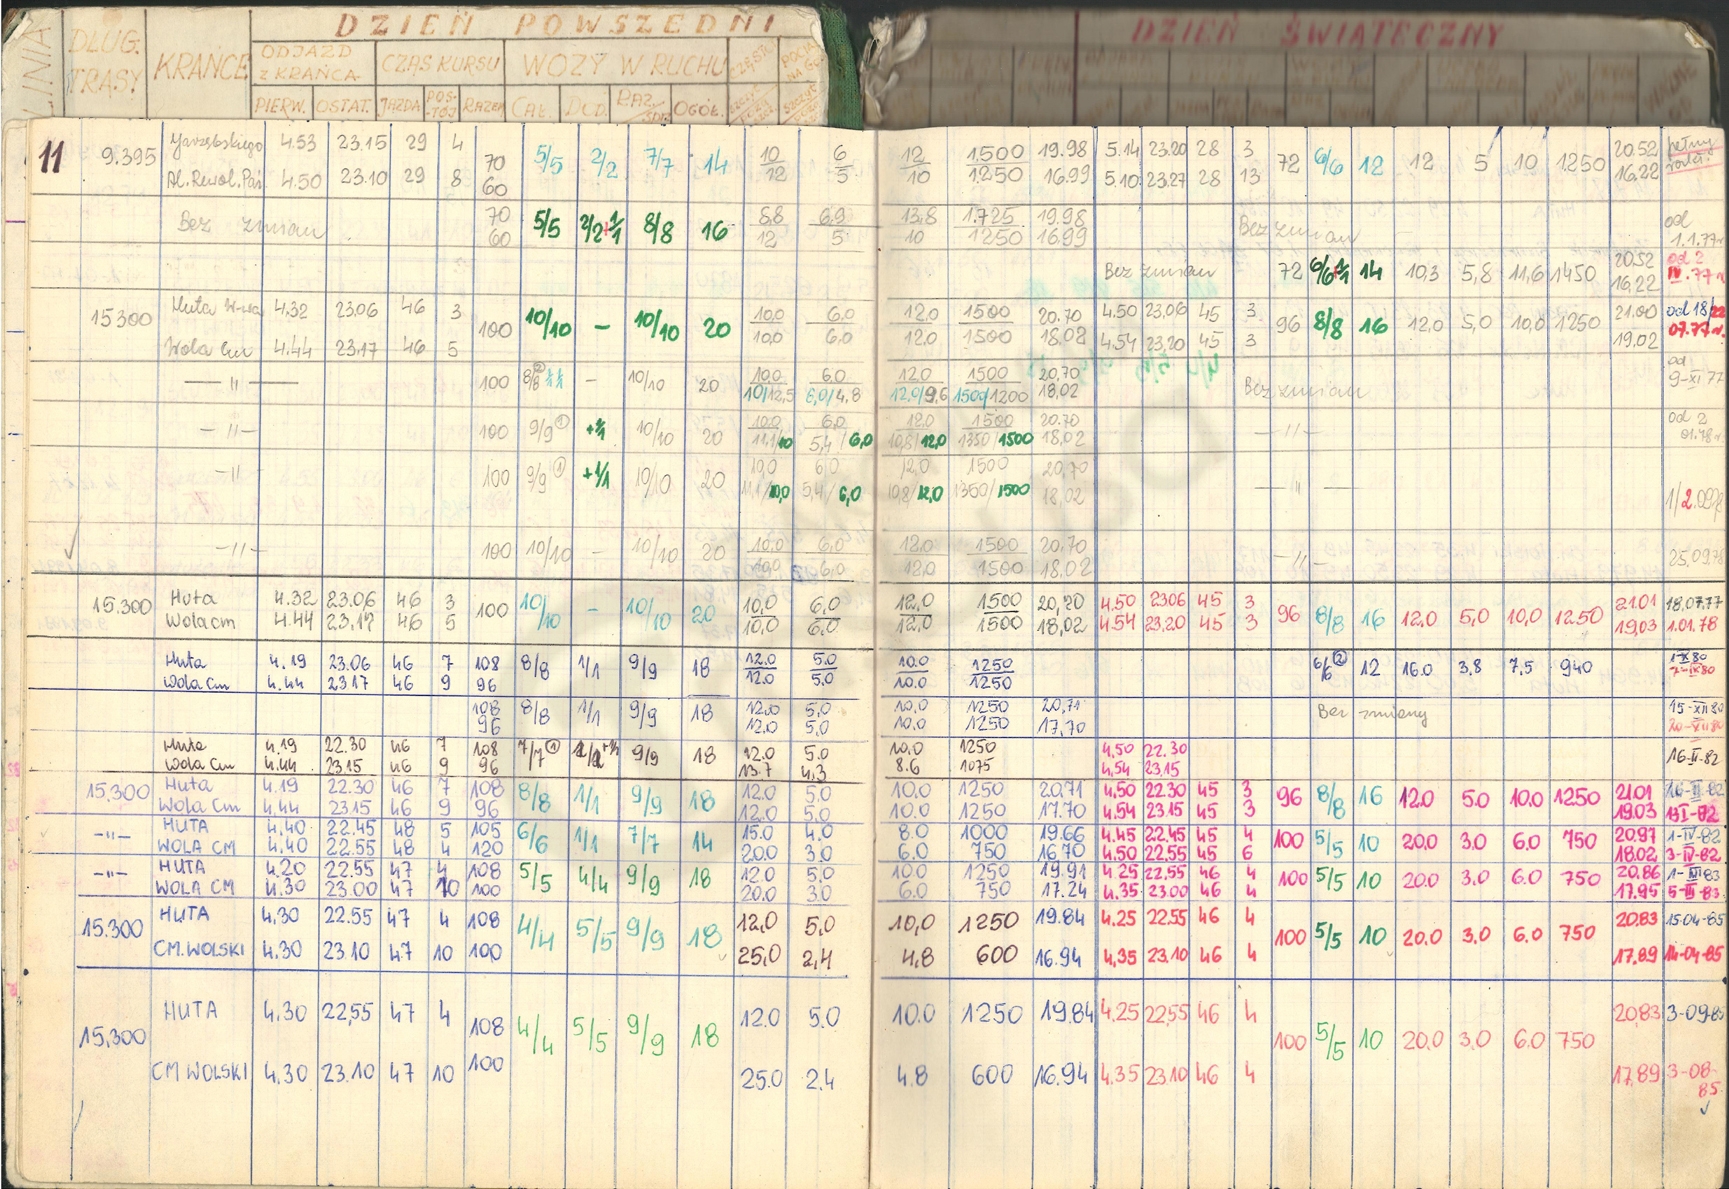 DZIEŃ POWSZEDNI
DZIEŃ ŚWIĄTECZNY
LINIA DŁUG. TRASY KRAŃCE ODJAZD z KRAŃCA CZAS KURSU WOZY W RUCHU
PIERW. OSTAT. JAZDA POSTÓJ RAZEM CAŁ. DOD. OGÓŁ.
11 9.395 4.53 23.15 29 4 70 5/5 2/2 7/7 14 10 6 12 1500 19.98 5.14 23.20 28 3 72 6/6 12 12 5 10 1250 20.52
Al. Rewol. Paź 4.50 23.10 29 8 60 12 5 10 1250 16.99 5.10 23.27 28 13 16.22
Bez zmian 70 5/5 2/2+1/1 8/8 16 8.8 6.9 13.8 1.725 19.98 Bez zmian od
60 12 5 10 1250 16.99 1.1.77
Bez zmian 72 6/6+1/1 14 10,3 5,8 11,6 1450 20.52 od 2
16,22 IV.77
15300 Huta W-wa 4.32 23.06 46 3 100 10/10 – 10/10 20 10.0 6.0 12.0 1500 20.70 4.50 23.06 45 3 96 8/8 16 12,0 5,0 10,0 1250 21.00 od 18/22
Wola Cm 4.44 23.17 46 5 10,0 6.0 12.0 1500 18.02 4.54 23,20 45 3 19,02 07.77
— " — 100 8/8 – 10/10 20 10.0 6.0 12.0 1500 20,70 Bez zmian od
10/12,5 6,0/4,8 12,0/9,6 1500/1200 18.02 9-XI 77
— " — 100 9/9 ① +1/1 10/10 20 10.0 6.0 12.0 1500 20.70 — " — od 2
11,1/10 5,4/6,0 10,8/12,0 1350/1500 18.02 01.78
— " 100 9/9 ① +1/1 10/10 20 10,0 6,0 12,0 1500 20,70 — " —
11,1/10,0 5,4/6,0 10,8/12,0 1350/1500 18,02
— " — 100 10/10 – 10/10 20 10,0 6,0 12.0 1500 20.70 — " —
10,0 6,0 12.0 1500 18.02
15.300 Huta 4.32 23.06 46 3 100 10/10 – 10/10 20 10,0 6,0 12,0 1500 20,70 4.50 23.06 45 3 96 8/8 16 12.0 5,0 10,0 1250 21.01 18.07.77
Wola cm 4.44 23.17 46 5 10,0 6,0 12,0 1500 18,02 4.54 23,20 45 3 19,03 1.01.78
Huta 4.19 23.06 46 7 108 8/8 1/1 9/9 18 12.0 5.0 10.0 1250 6/6 ② 12 16.0 3,8 7,5 940 1-X 80
Wola Cm 4.44 23.17 46 9 96 12.0 5.0 10.0 1250
108 8/8 1/1 9/9 18 12.0 5,0 10.0 1250 20,71 Bez zmiany 15-XII 80
96 12.0 5,0 10,0 1250 17,70 20-XII 80
Huta 4.19 22.30 46 7 108 7/7 ① 9/9 18 12.0 5.0 10,0 1250 4,50 22.30 16-II-82
Wola Cm 4.44 23.15 46 9 96 13.7 4,3 8.6 1075 4,54 23,15
15.300 Huta 4.19 22.30 46 7 108 8/8 1/1 9/9 18 12.0 5.0 10.0 1250 20.71 4,50 22.30 45 3 96 8/8 16 12.0 5.0 10.0 1250 21.01 16-II-82
Wola Cm 4.44 23.15 46 9 96 12.0 5.0 10.0 1250 17.70 4.54 23.15 45 3 19.03
— " — HUTA 4.40 22.45 48 5 105 6/6 1/1 7/7 14 15.0 4.0 8.0 1000 19.66 4.45 22.45 45 4 100 5/5 10 20.0 3.0 6.0 750 20.97 1-IV-82
WOLA CM 4.40 22.55 48 4 120 20.0 3.0 6.0 750 16.70 4.50 22,55 45 6 18.02 3-IV-82
— " — HUTA 4.20 22.55 47 4 108 5/5 4/4 9/9 18 12.0 5.0 10.0 1250 19.91 4.25 22,55 46 4 100 5/5 10 20.0 3.0 6.0 750 20,86 1-III-83
WOLA CM 4.30 23.00 47 10 100 20.0 3.0 6.0 750 17.24 4.35 23.00 46 4 17.95 5-II-83
15.300 HUTA 4,30 22.55 47 4 108 4/4 5/5 9/9 18 12,0 5,0 10,0 1250 19.84 4.25 22.55 46 4 100 5/5 10 20.0 3,0 6,0 750 20.83 15-04-85
CM.WOLSKI 4,30 23.10 47 10 100 25,0 2,4 4,8 600 16.94 4,35 23.10 46 4 17.89 14-04-85
15,300 HUTA 4.30 22,55 47 4 108 4/4 5/5 9/9 18 12.0 5.0 10.0 1250 19.84 4.25 22,55 46 4 100 5/5 10 20,0 3,0 6.0 750 20,83 3-09-85
CM WOLSKI 4.30 23.10 47 10 100 25.0 2.4 4.8 600 16.94 4.35 23.10 46 4 17,89 3-08-85